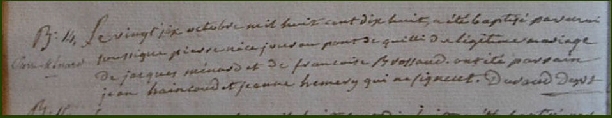 B. 14. Le vingt six octobre mil huit cent dix huit, a été baptisé par moi
soussigné pierre né ce jour au pont de quitti de légitime mariage
de jacques ménard et de françoise Brossaud. ont été parrain
jean haincaud et jeanne hemery qui ne signent. Durand